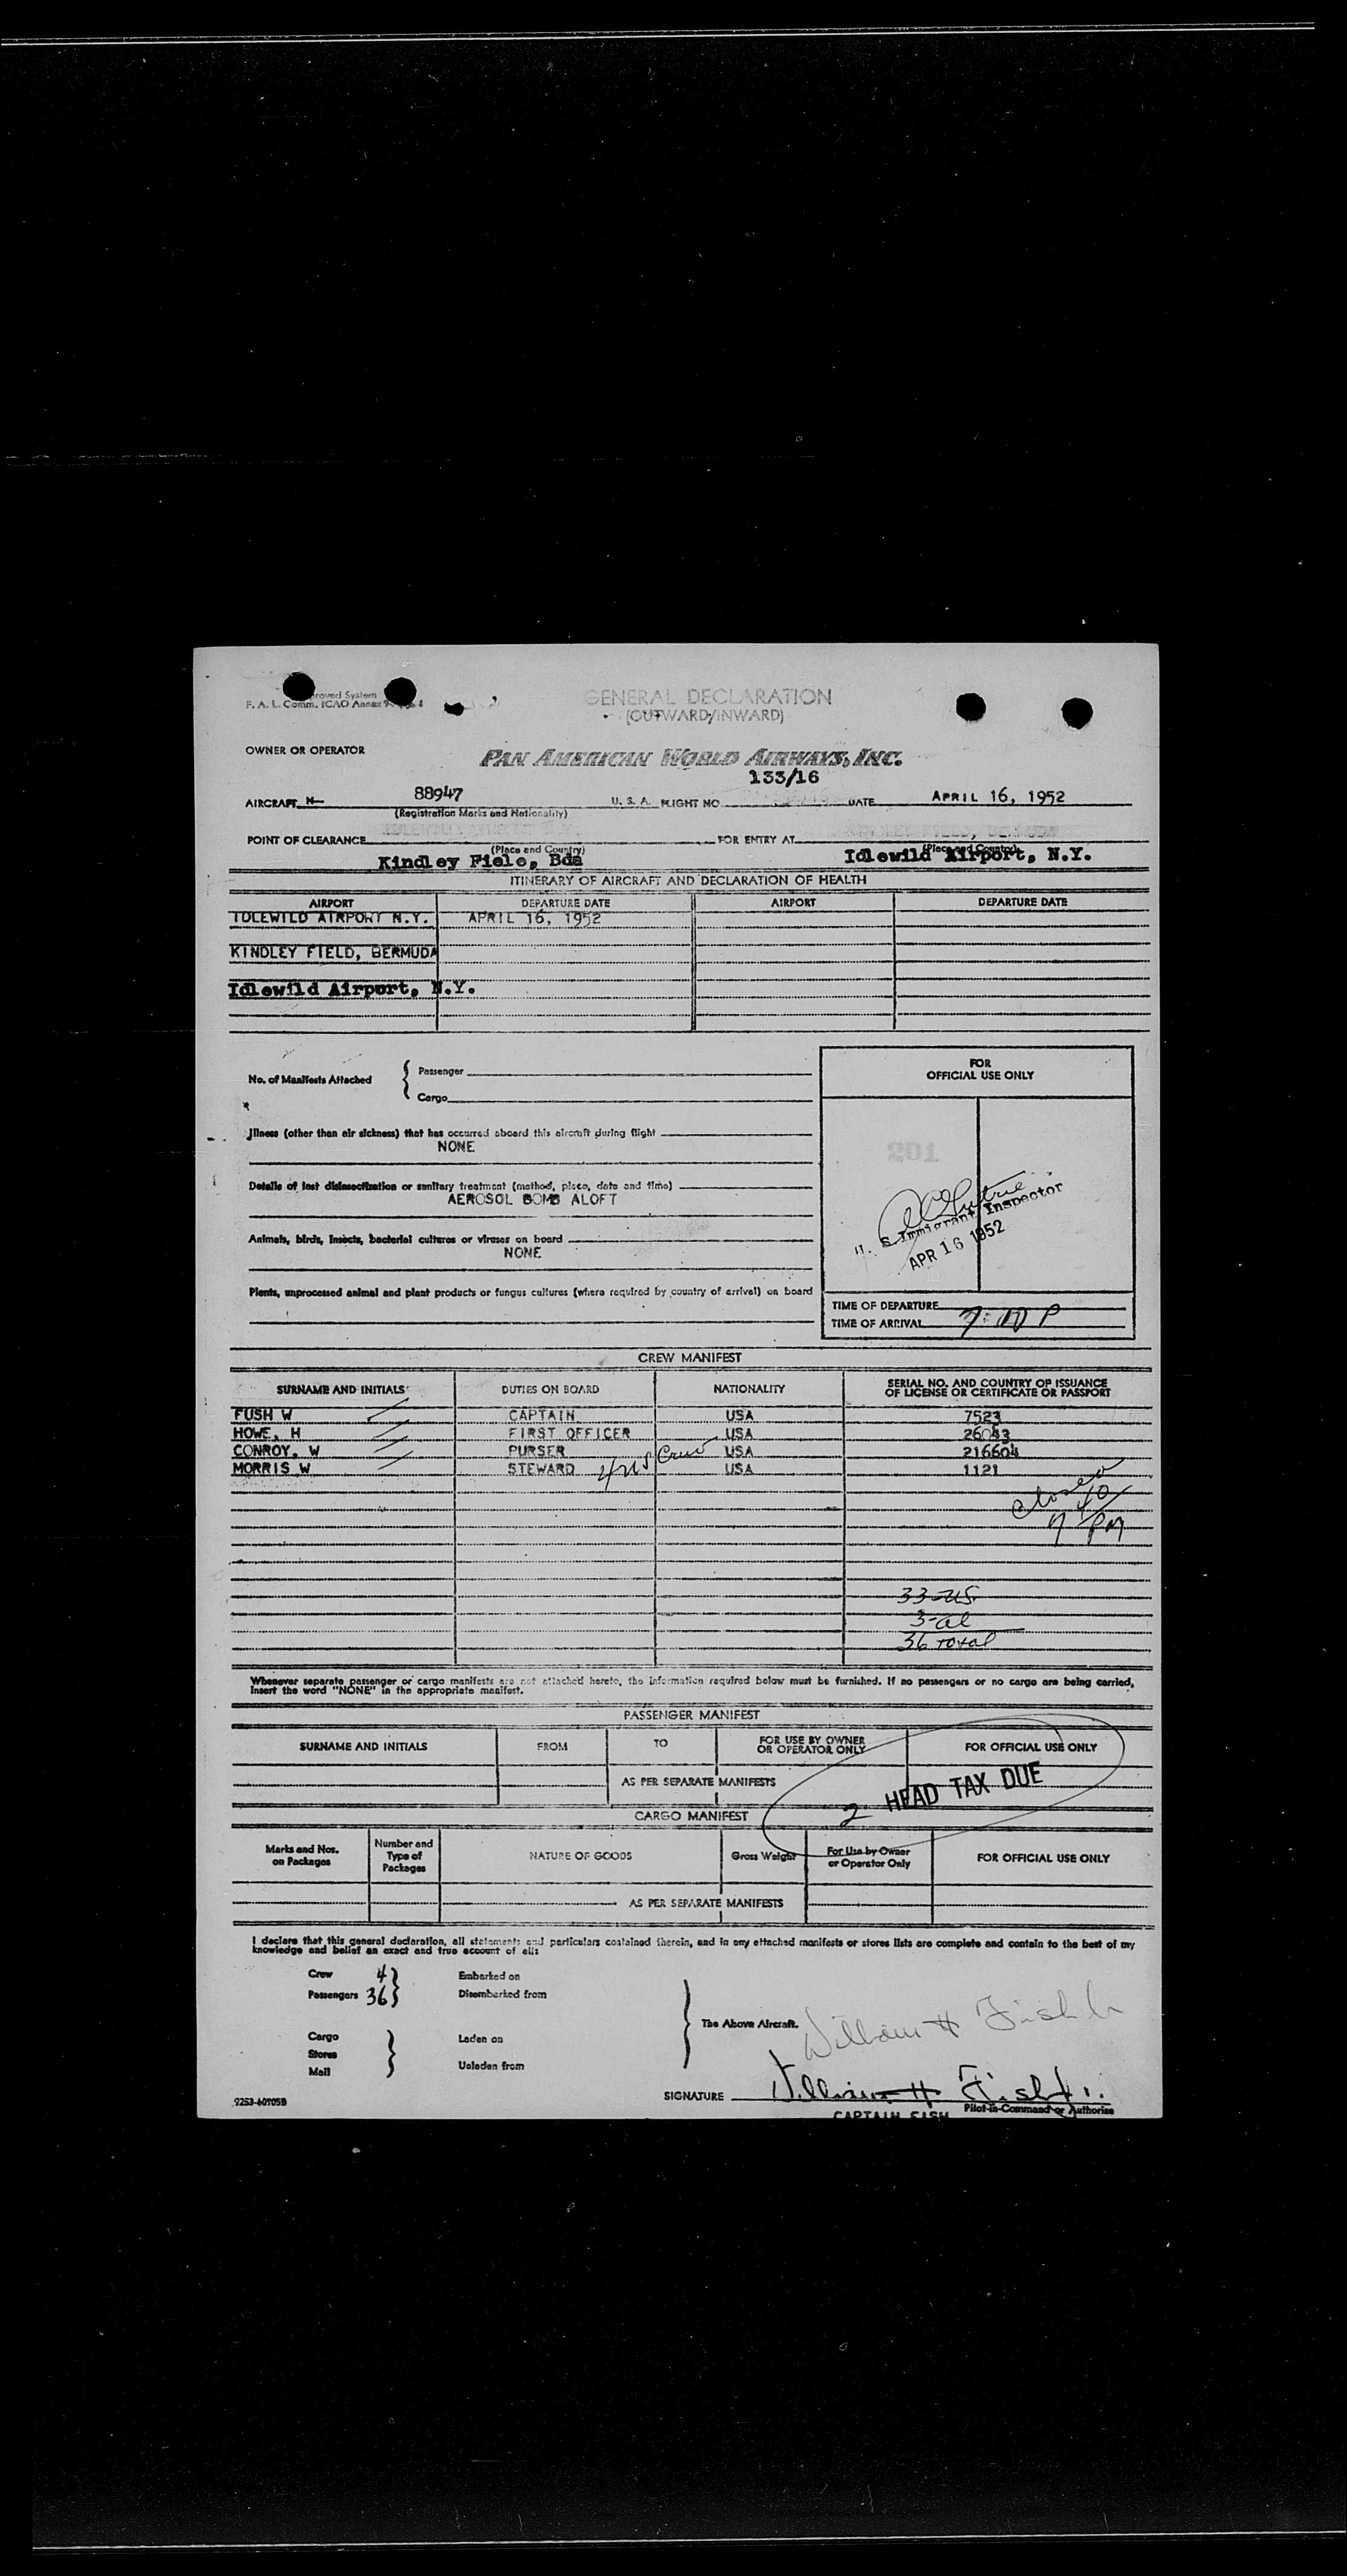 proved System
F. A. L. Comm. ICAO Annex 9
GENERAL DECLARATION
(OUTWARD/INWARD)
OWNER OR OPERATOR
PAN AMERICAN WORLD AIRWAYS, INC.
133/16
AIRCRAFT N— 88947 U. S. A. FLIGHT NO DATE APRIL 16, 1952
(Registration Marks and Nationality)
POINT OF CLEARANCE FOR ENTRY AT
(Place and Country) (Place and Country)
Kindley Fiele, Bda Idlewild Airport, N.Y.
ITINERARY OF AIRCRAFT AND DECLARATION OF HEALTH
AIRPORT DEPARTURE DATE AIRPORT DEPARTURE DATE
IDLEWILD AIRPORT N.Y. APRIL 16, 1952
KINDLEY FIELD, BERMUDA
Idlewild Airport, N.Y.
No. of Manifests Attached { Passenger
Cargo
FOR
OFFICIAL USE ONLY
Illness (other than air sickness) that has occurred aboard this aircraft during flight
NONE
201
Details of last disinsectization or sanitary treatment (method, place, date and time)
AEROSOL BOMB ALOFT
U. S. Immigrant Inspector
APR 16 1952
Animals, birds, insects, bacterial cultures or viruses on board
NONE
Plants, unprocessed animal and plant products or fungus cultures (where required by country of arrival) on board
TIME OF DEPARTURE
TIME OF ARRIVAL 7:00 P
CREW MANIFEST
SURNAME AND INITIALS DUTIES ON BOARD NATIONALITY SERIAL NO. AND COUNTRY OF ISSUANCE
OF LICENSE OR CERTIFICATE OR PASSPORT
FUSH W CAPTAIN USA 7523
HOWE, H FIRST OFFICER USA 26043
CONROY, W PURSER USA 216604
MORRIS W STEWARD 4 US Crew USA 1121
closed
7 40/ PM
33-US.
3-al
36 total
Whenever separate passenger or cargo manifests are not attached hereto, the information required below must be furnished. If no passengers or no cargo are being carried,
insert the word "NONE" in the appropriate manifest.
PASSENGER MANIFEST
SURNAME AND INITIALS FROM TO FOR USE BY OWNER
OR OPERATOR ONLY FOR OFFICIAL USE ONLY
AS PER SEPARATE MANIFESTS
2 HEAD TAX DUE
CARGO MANIFEST
Marks and Nos.
on Packages Number and
Type of
Packages NATURE OF GOODS Gross Weight For Use by Owner
or Operator Only FOR OFFICIAL USE ONLY
AS PER SEPARATE MANIFESTS
I declare that this general declaration, all statements and particulars contained therein, and in any attached manifests or stores lists are complete and contain to the best of my
knowledge and belief an exact and true account of all:
Crew 4 } Embarked on
Passengers 36 } Disembarked from
The Above Aircraft. William H Fish Jr
Cargo Laden on
Stores
Mail Unladen from
SIGNATURE William H Fish Jr.
9253-60905B Pilot-in-Command or Authorize
CAPTAIN FISH